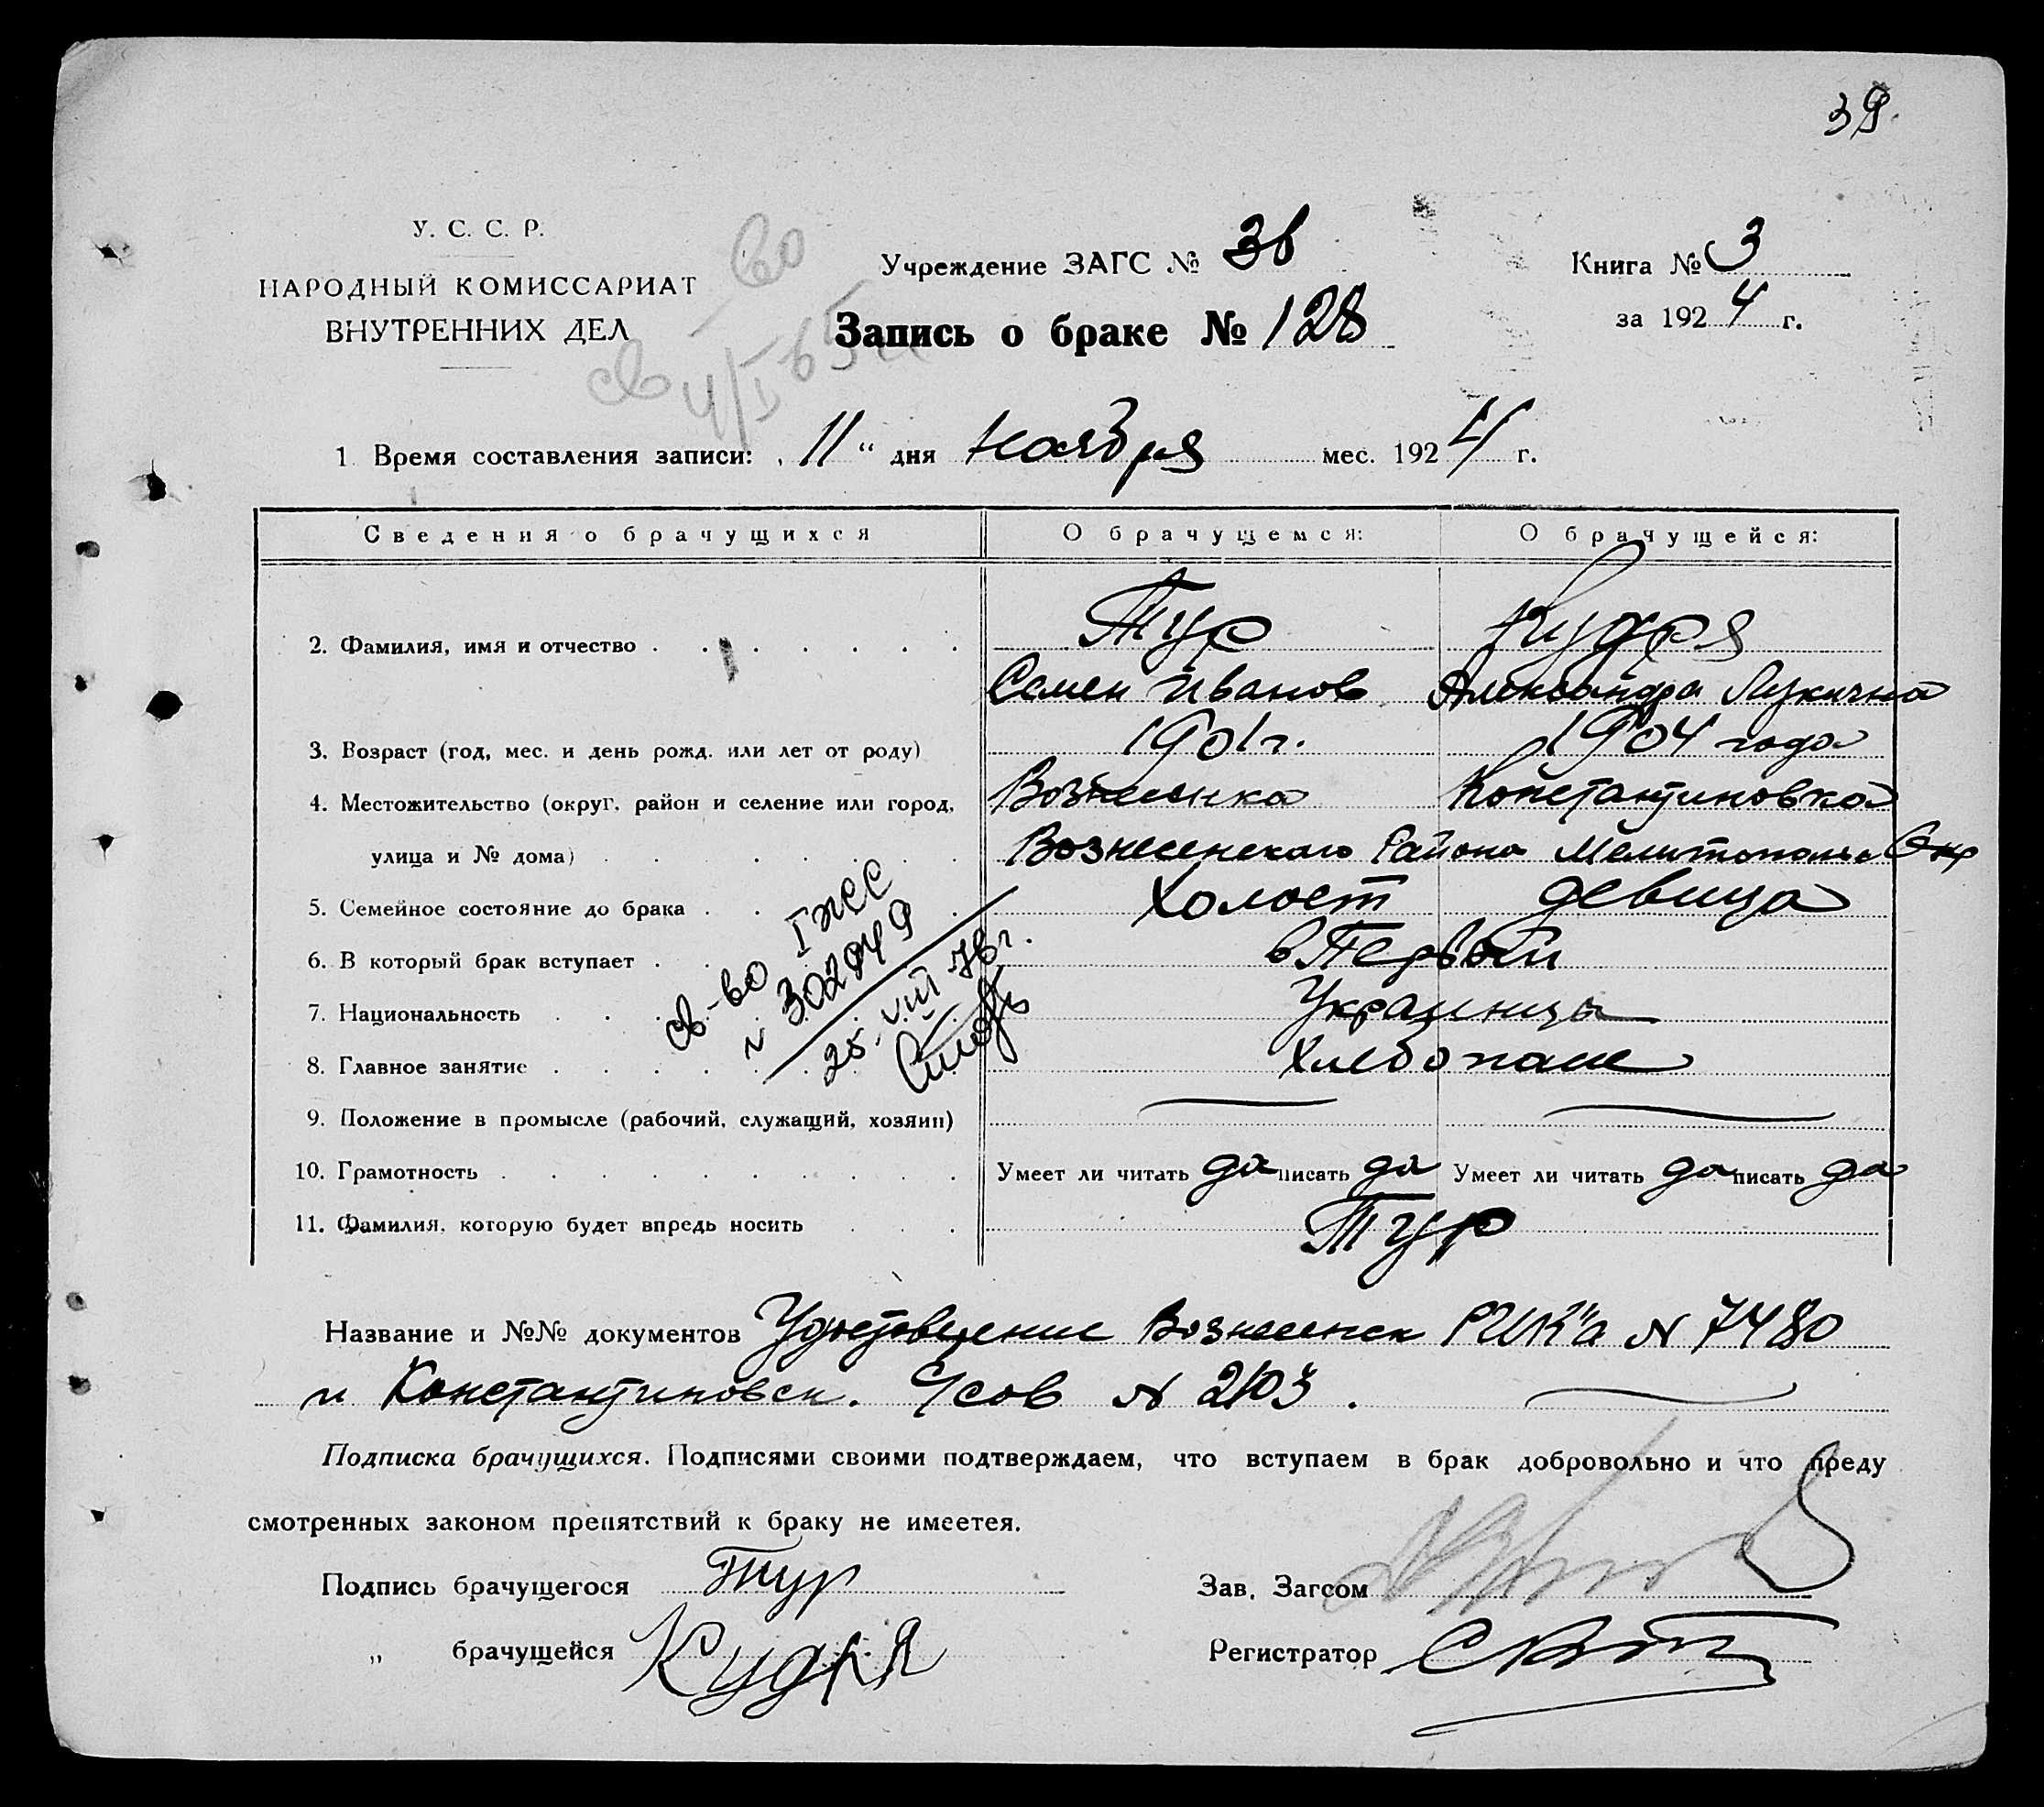 39.
У. С. С. Р.
НАРОДНЫЙ КОМИССАРИАТ
ВНУТРЕННИХ ДЕЛ
Учреждение ЗАГС № 36
Книга № 3
Запись о браке № 128
за 1924 г.
1 Время составления записи: „11“ дня Ноября мес. 1924 г.
Сведения о брачущихся О брачущемся: О брачущейся:
2. Фамилия, имя и отчество Тур Кудря
Семен Иванов Александра Лукична
3. Возраст (год, мес. и день рожд. или лет от роду) 1901 г. 1904 года
4. Местожительство (округ, район и селение или город, Вознесенка Константиновка
улица и № дома) Вознесенского Района Мелитополь Окр
5. Семейное состояние до брака Холост девица
6. В который брак вступает в Первый
7. Национальность Украинцы
8. Главное занятие Хлебопаш
св-во I жсс
N 302949
25. VIII 76 г.
9. Положение в промысле (рабочий, служащий, хозяин)
10. Грамотность Умеет ли читать да писать да Умеет ли читать да писать да
11. Фамилия, которую будет впредь носить Тур
Название и №№ документов Удостоверение Вознесенск РИК'а N 7480
и Константиновск. N 2103.
Подписка брачущихся. Подписями своими подтверждаем, что вступаем в брак добровольно и что преду
смотренных законом препятствий к браку не имеется.
Подпись брачущегося Тур
Зав. Загсом
„ брачущейся Кудря
Регистратор